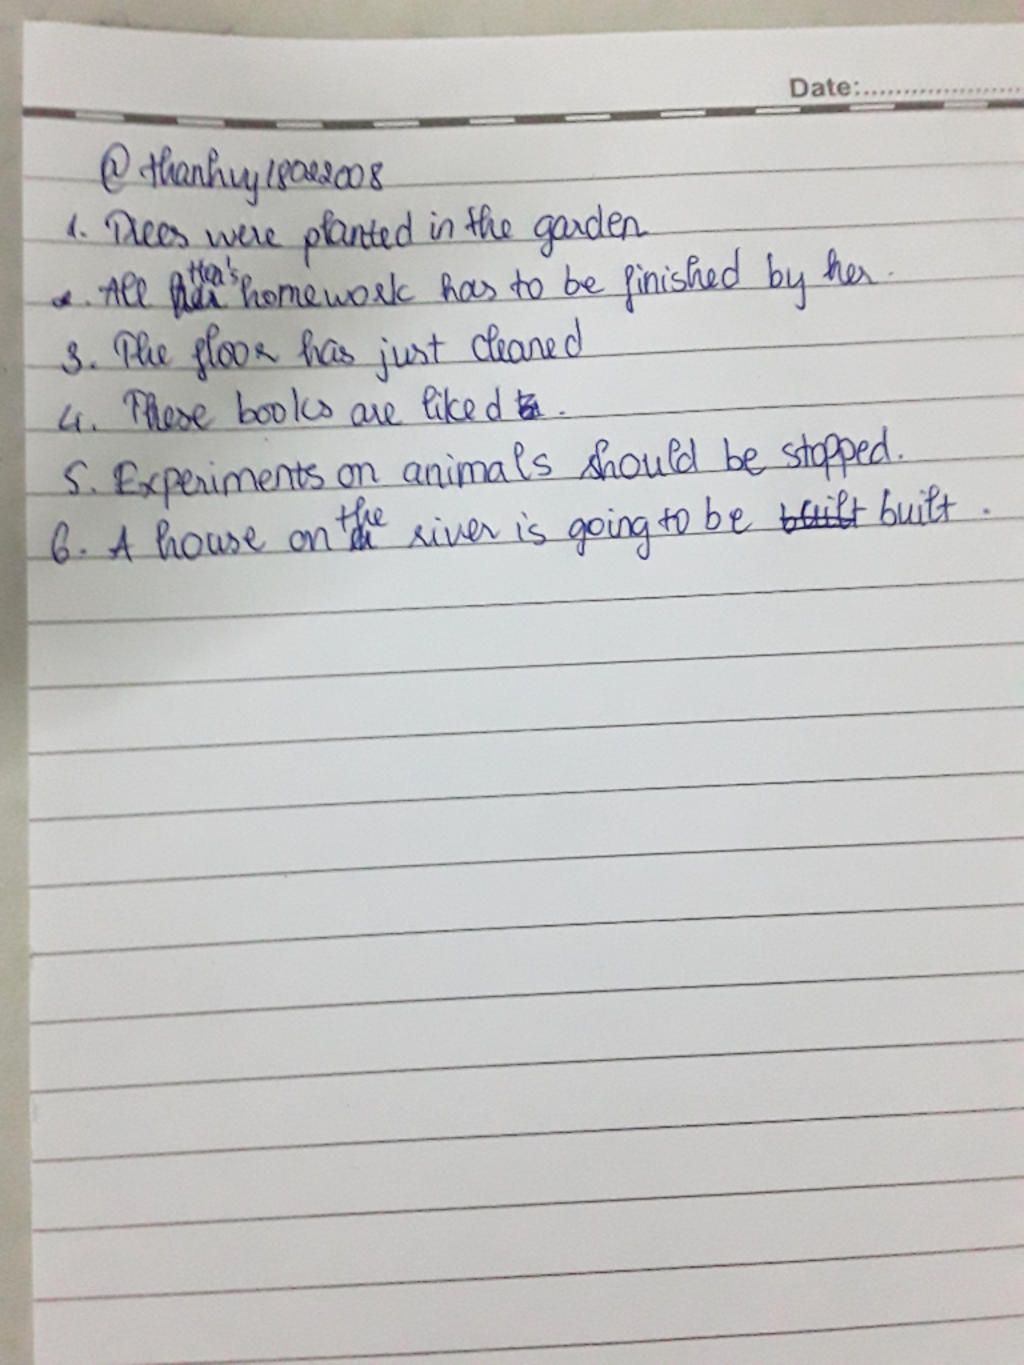 Date:....................
@thanhuy18022008
1. Trees were planted in the garden
2. All Hoa's homework has to be finished by her.
3. The floor has just cleaned
4. These books are liked.
5. Experiments on animals should be stopped.
6. A house on the river is going to be built built.